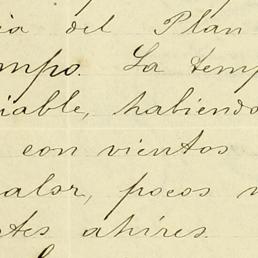 ia del Plan
mpo. La temp
iable, habiendo
con vientos
alor, pocos
tes ahires.